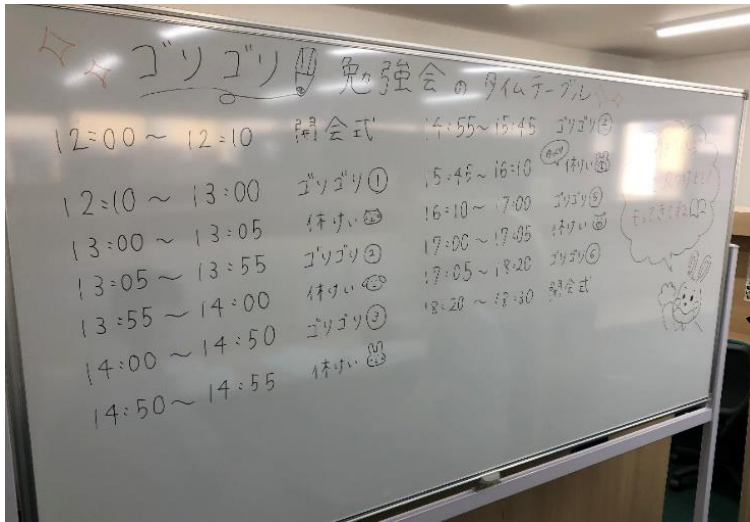 ゴリゴリ勉強会のタイムテーブル
12:00～12:10 開会式
12:10～13:00 ゴリゴリ①
13:00～13:05 休けい
13:05～13:55 ゴリゴリ②
13:55～14:00 休けい
14:00～14:50 ゴリゴリ③
14:50～14:55 休けい
14:55～15:45 ゴリゴリ④
15:45～16:10 休けい
16:10～17:00 ゴリゴリ⑤
17:00～17:05 休けい
17:05～18:20 ゴリゴリ⑥
18:20～18:30 閉会式